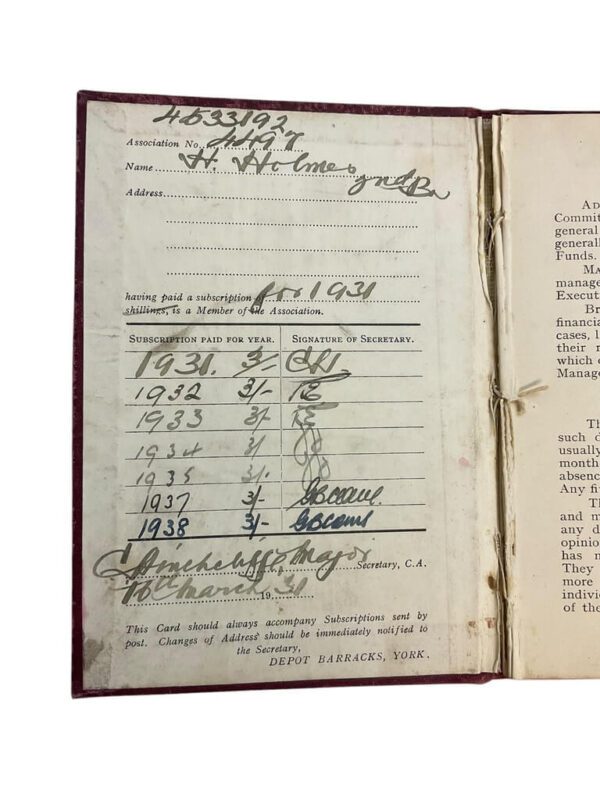 4533192
Association No. 4497
Name H. Holmes 2nd Bn
Address
having paid a subscription of for 1931
shillings, is a Member of the Association.
SUBSCRIPTION PAID FOR YEAR. SIGNATURE OF SECRETARY.
1931. 3/-
1932 3/- TE
1933 3/- TE
1934 3/
1935 3/-
1937 3/-
1938 3/-
C Hinchcliffe Major Secretary, C.A.
16th March 1931
This Card should always accompany Subscriptions sent by
post. Changes of Address should be immediately notified to
the Secretary,
DEPOT BARRACKS, YORK.
AD
Committ
general
generall
Funds.
MA
manage
Executi
Br
financia
cases, l
their r
which c
Manage
Th
such d
usually
month
absenc
Any fi
Th
and m
any d
opinio
has n
They
more
individ
of the